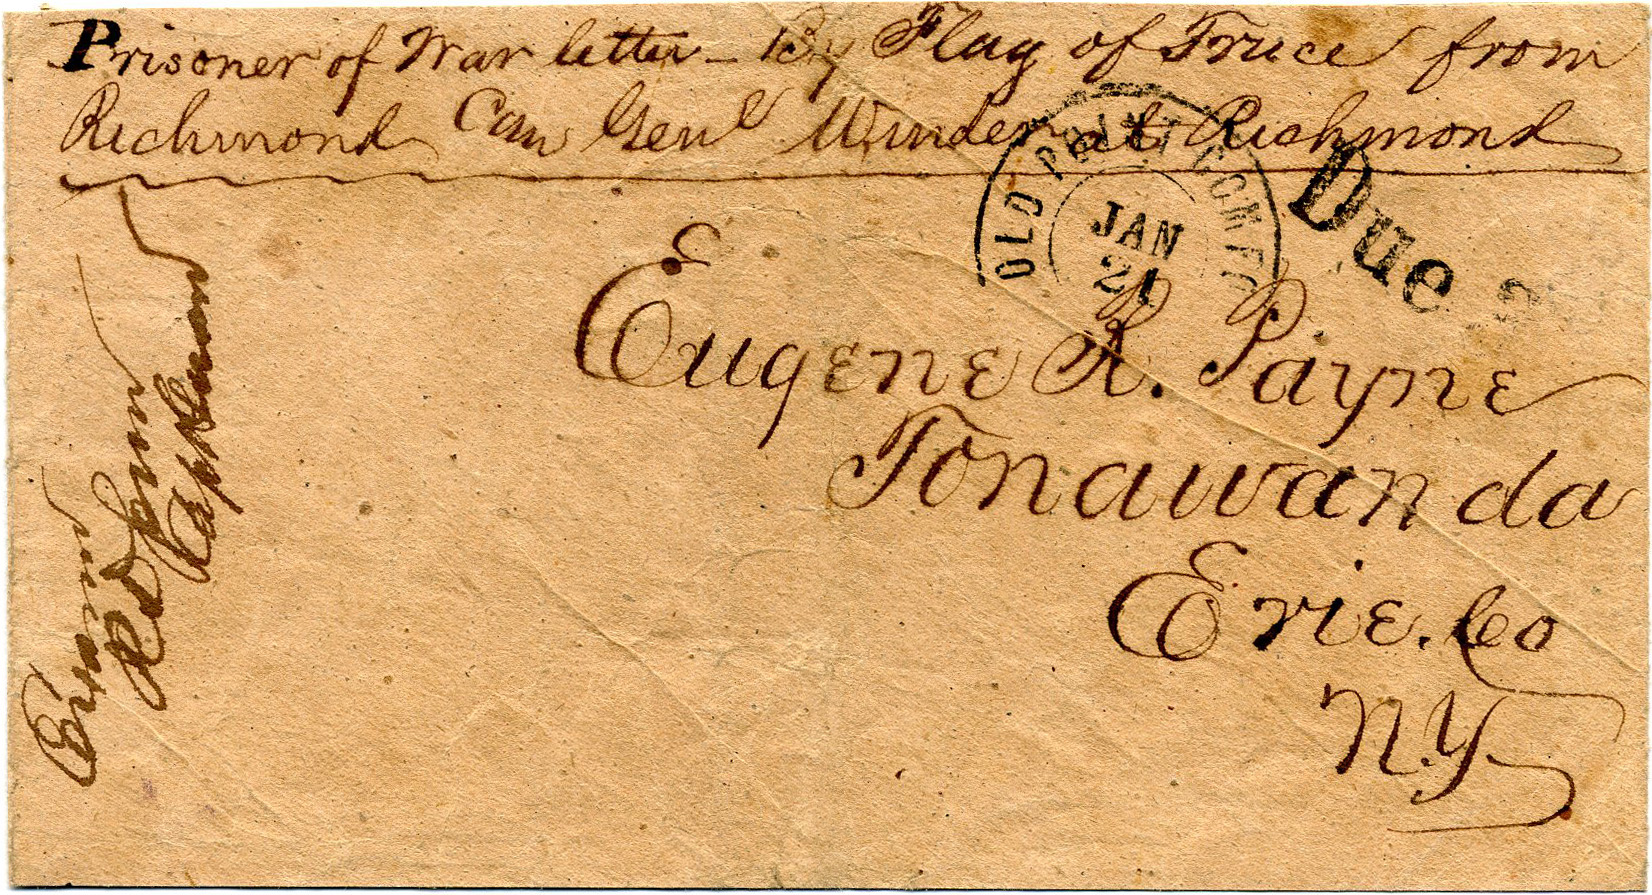 Prisoner of War letter – By Flag of Truce from
Richmond Care Genl Winder at Richmond
OLD POINT COMFO
JAN
21
Due
Eugene R. Payne
Tonawanda
Erie. Co
N.Y.